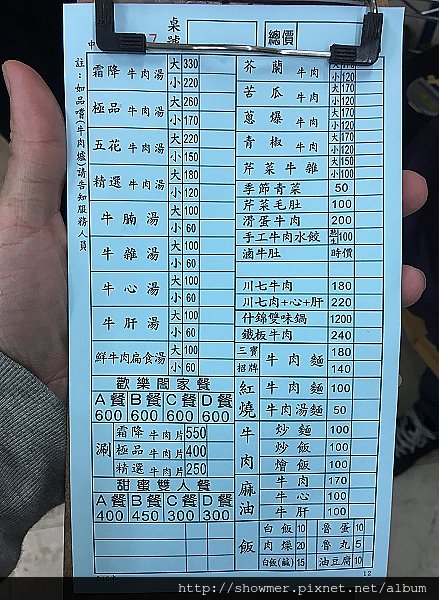 桌號
總價
註：如品嚐(牛肉爐)請告知服務人員
霜降 牛肉湯 大 330
小 220
極品 牛肉湯 大 260
小 170
五花 牛肉湯 大 220
小 150
精選 牛肉湯 大 180
小 120
牛腩湯 大 100
小 60
牛雜湯 大 100
小 60
牛心湯 大 100
小 60
牛肝湯 大 100
小 60
鮮牛肉扁食湯 大 100
小 60
歡樂闔家餐
A餐 B餐 C餐 D餐
600 600 600 600
涮 霜降 牛肉片 550
極品 牛肉片 400
精選 牛肉片 250
甜蜜雙人餐
A餐 B餐 C餐 D餐
400 450 300 300
芥蘭 牛肉 大 170
小 120
苦瓜 牛肉 大 170
小 120
蔥爆 牛肉 大 170
小 120
青椒 牛肉 大 170
小 120
芹菜牛雜 大 150
小 100
季節青菜 50
芹菜毛肚 100
滑蛋牛肉 200
手工牛肉水餃 100
滷牛肚 時價
川七牛肉 180
川七肉+心+肝 220
什錦雙味鍋 1200
鐵板牛肉 240
三寶 牛肉麵 180
招牌 140
紅燒 牛肉麵 100
牛肉湯麵 50
牛肉 炒麵 100
炒飯 100
燴飯 100
麻油 牛肉 170
牛心 100
牛肝 100
飯 白飯 10 魯蛋 10
肉燥 20 魯丸 5
白飯(鹹) 15 油豆腐 10
12
http://showmer.pixnet.net/album